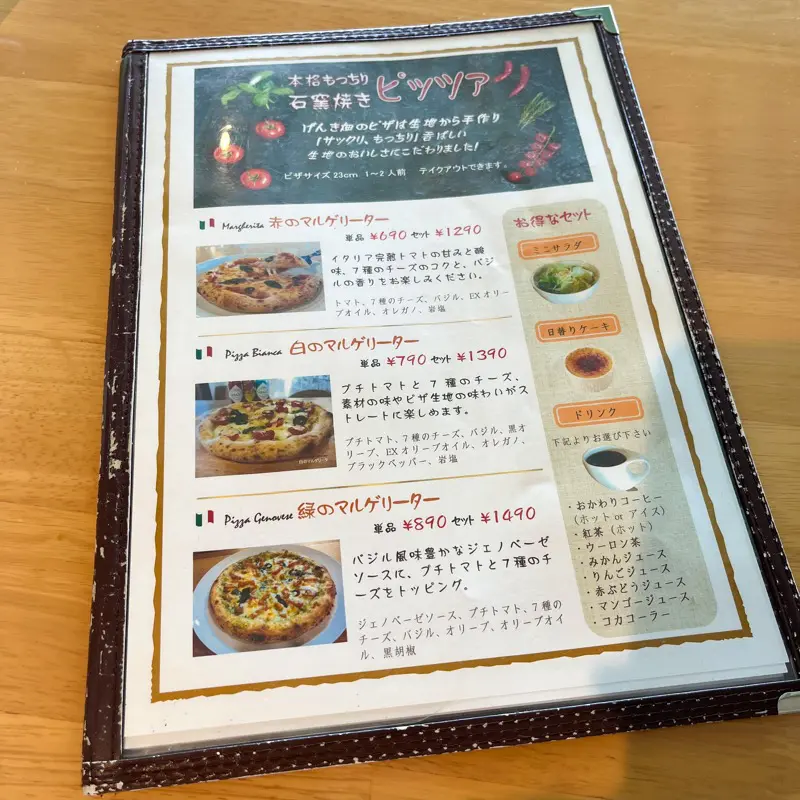 本格もっちり
石窯焼き ピッツァ
げんき畑のピザは生地から手作り
!サックリ、もっちり!香ばしい
生地のおいしさにこだわりました!
ピザサイズ 23cm 1～2人前 テイクアウトできます。
Margherita 赤のマルゲリーター
単品 ¥690 セット ¥1290
イタリア完熟トマトの甘みと酸
味、7種のチーズのコクと、バジ
ルの香りをお楽しみください。
トマト、7種のチーズ、バジル、EXオリー
ブオイル、オレガノ、岩塩
Pizza Bianca 白のマルゲリーター
単品 ¥790 セット ¥1390
プチトマトと7種のチーズ、
素材の味やピザ生地の味わいがス
トレートに楽しめます。
プチトマト、7種のチーズ、バジル、黒オ
リーブ、EXオリーブオイル、オレガノ、
ブラックペッパー、岩塩
Pizza Genovese 緑のマルゲリーター
単品 ¥890 セット ¥1490
バジル風味豊かなジェノベーゼ
ソースに、プチトマトと7種のチ
ーズをトッピング。
ジェノベーゼソース、プチトマト、7種の
チーズ、バジル、オリーブ、オリーブオイ
ル、黒胡椒
お得なセット
ミニサラダ
日替りケーキ
ドリンク
下記よりお選び下さい
・おかわりコーヒー
（ホット or アイス）
・紅茶（ホット）
・ウーロン茶
・みかんジュース
・りんごジュース
・赤ぶどうジュース
・マンゴージュース
・コカコーラー